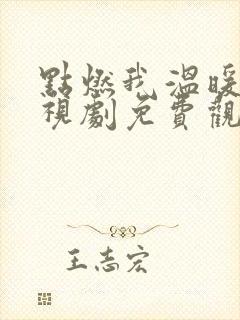 點燃我溫暖
視劇免費觀
王志宏